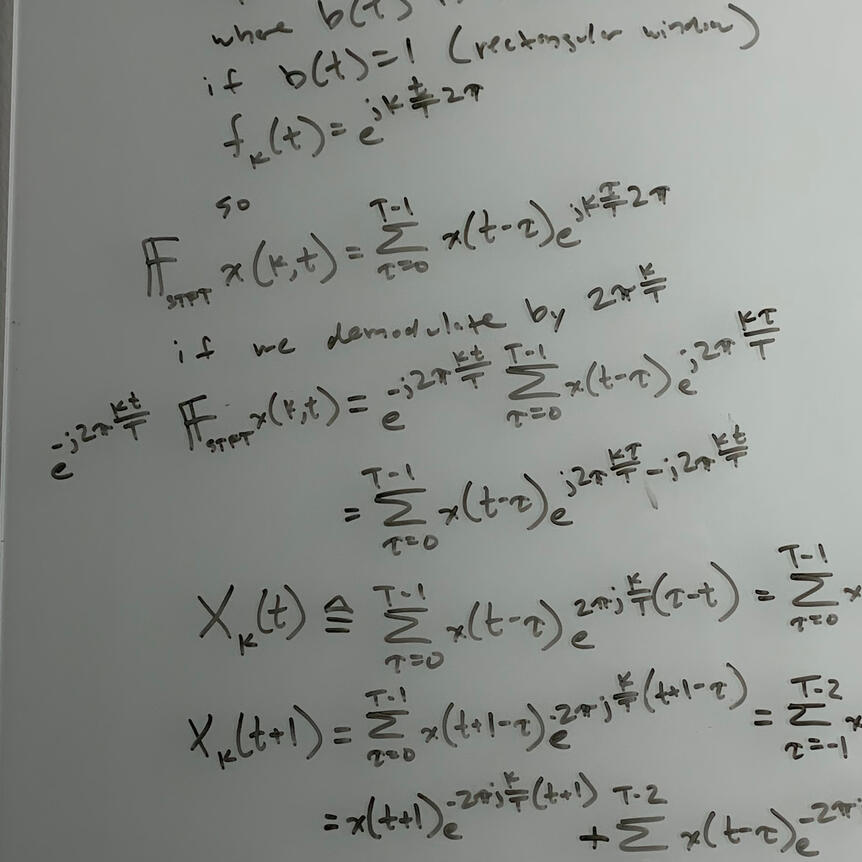 where b(t)
if b(t)=1 (rectangular window)
f_k(t)=e^{jk\frac{t}{T}2π}
so
𝔽_{STFT} x(k,t)=\sum_{τ=0}^{T-1} x(t-τ)e^{jk\frac{τ}{T}2π}
if we demodulate by 2π\frac{k}{T}
e^{-j2π\frac{kt}{T}} 𝔽_{STFT} x(k,t)=e^{-j2π\frac{kt}{T}} \sum_{τ=0}^{T-1} x(t-τ)e^{j2π\frac{kτ}{T}}
=\sum_{τ=0}^{T-1} x(t-τ)e^{j2π\frac{kτ}{T}-j2π\frac{kt}{T}}
X_k(t) ≜ \sum_{τ=0}^{T-1} x(t-τ)e^{2πj\frac{k}{T}(τ-t)} = \sum_{τ=0}^{T-1} x
X_k(t+1)=\sum_{τ=0}^{T-1} x(t+1-τ)e^{-2πj\frac{k}{T}(t+1-τ)} = \sum_{τ=-1}^{T-2} x
=x(t+1)e^{-2πj\frac{k}{T}(t+1)} + \sum^{T-2} x(t-τ)e^{-2πj